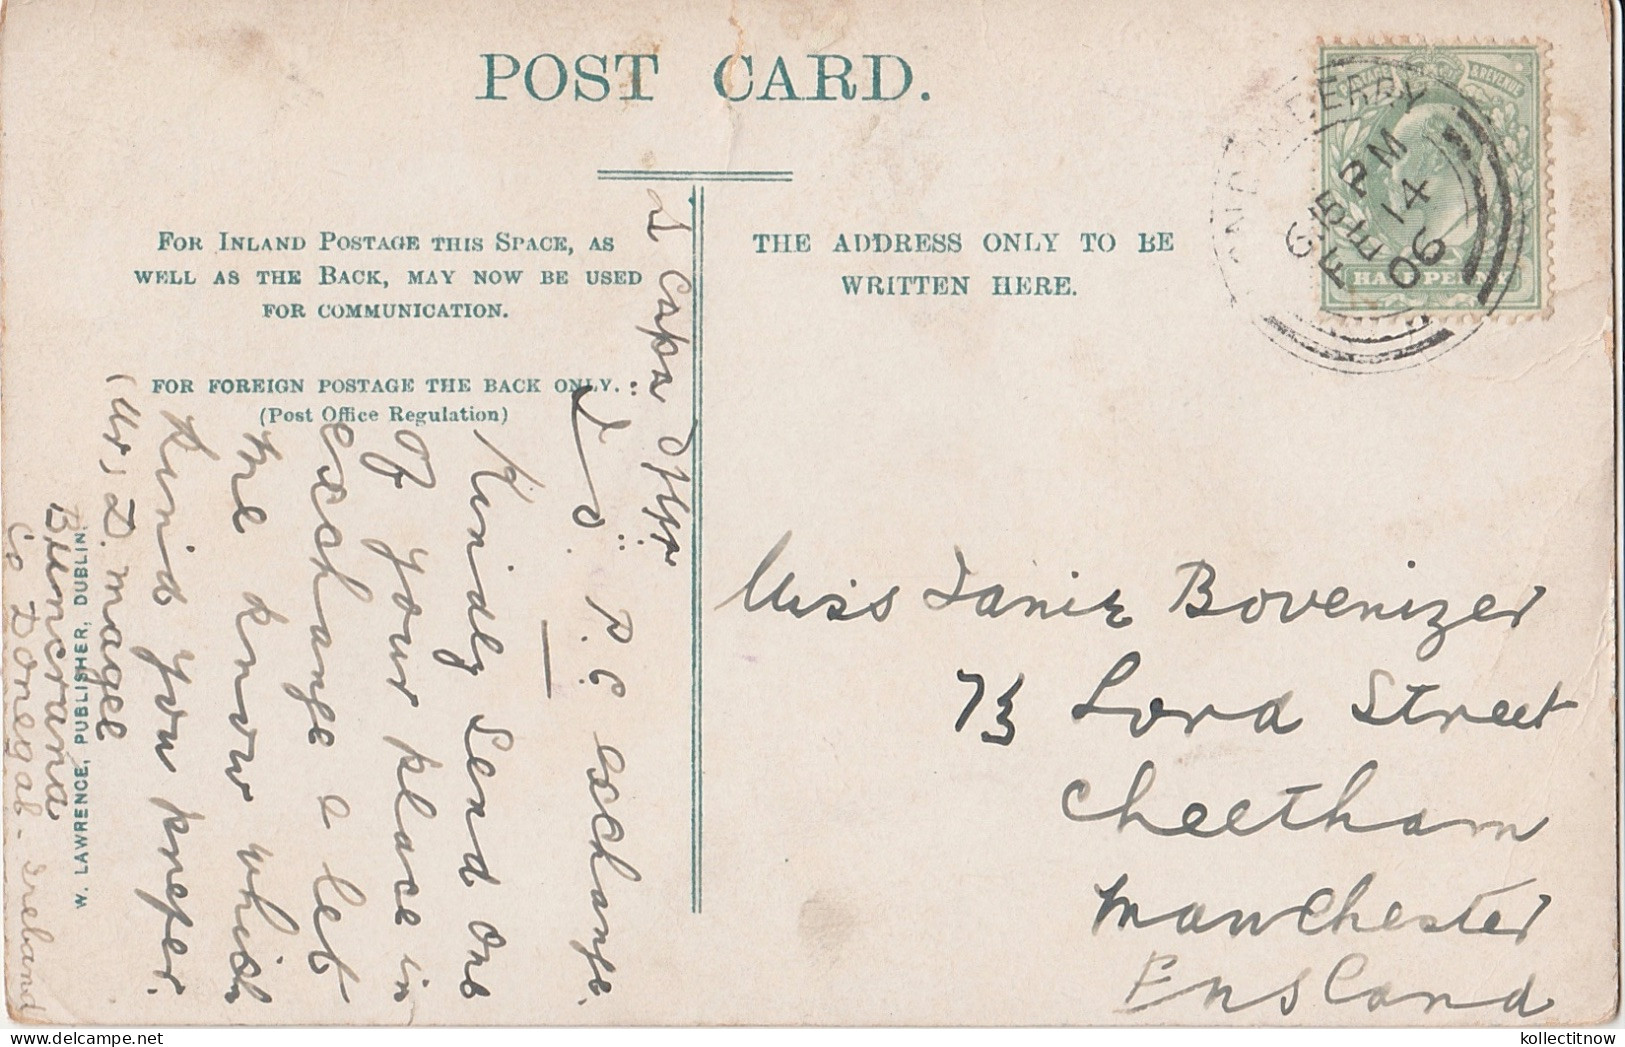 POST CARD.
FOR INLAND POSTAGE THIS SPACE, AS
WELL AS THE BACK, MAY NOW BE USED
FOR COMMUNICATION.
FOR FOREIGN POSTAGE THE BACK ONLY.
(Post Office Regulation)
THE ADDRESS ONLY TO BE
WRITTEN HERE.
& REVENUE
HALFPENNY
NDONDERRY
6.15 PM
FE 14
06
P.C exchange.
Kindly send one
of your place in
exchange & let
me know which
kind you prefer.
(Mr, D. Magee
Buncrana
Co Donegal - Ireland
W. LAWRENCE, PUBLISHER, DUBLIN.
Miss Janie Bovenizer
73 Lord Street
Cheetham
Manchester
England
kollectitnow